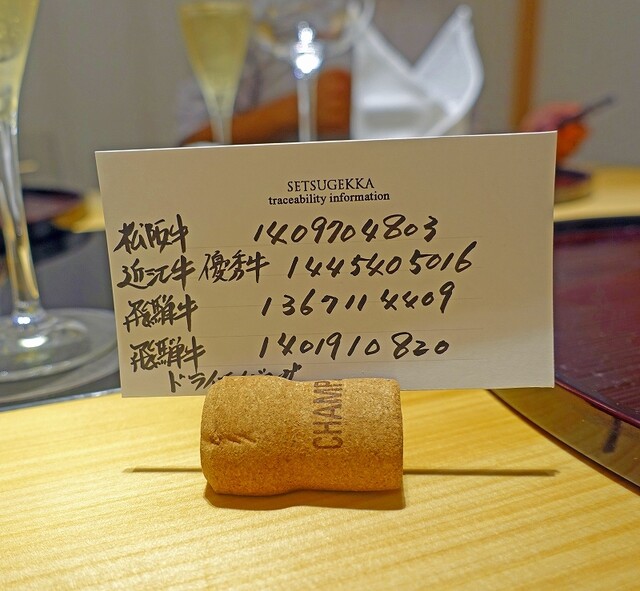 SETSUGEKKA
traceability information
松阪牛 1409704803
近江牛 優秀牛 1445405016
飛騨牛 1367114409
飛騨牛 1401910820
CHAMP